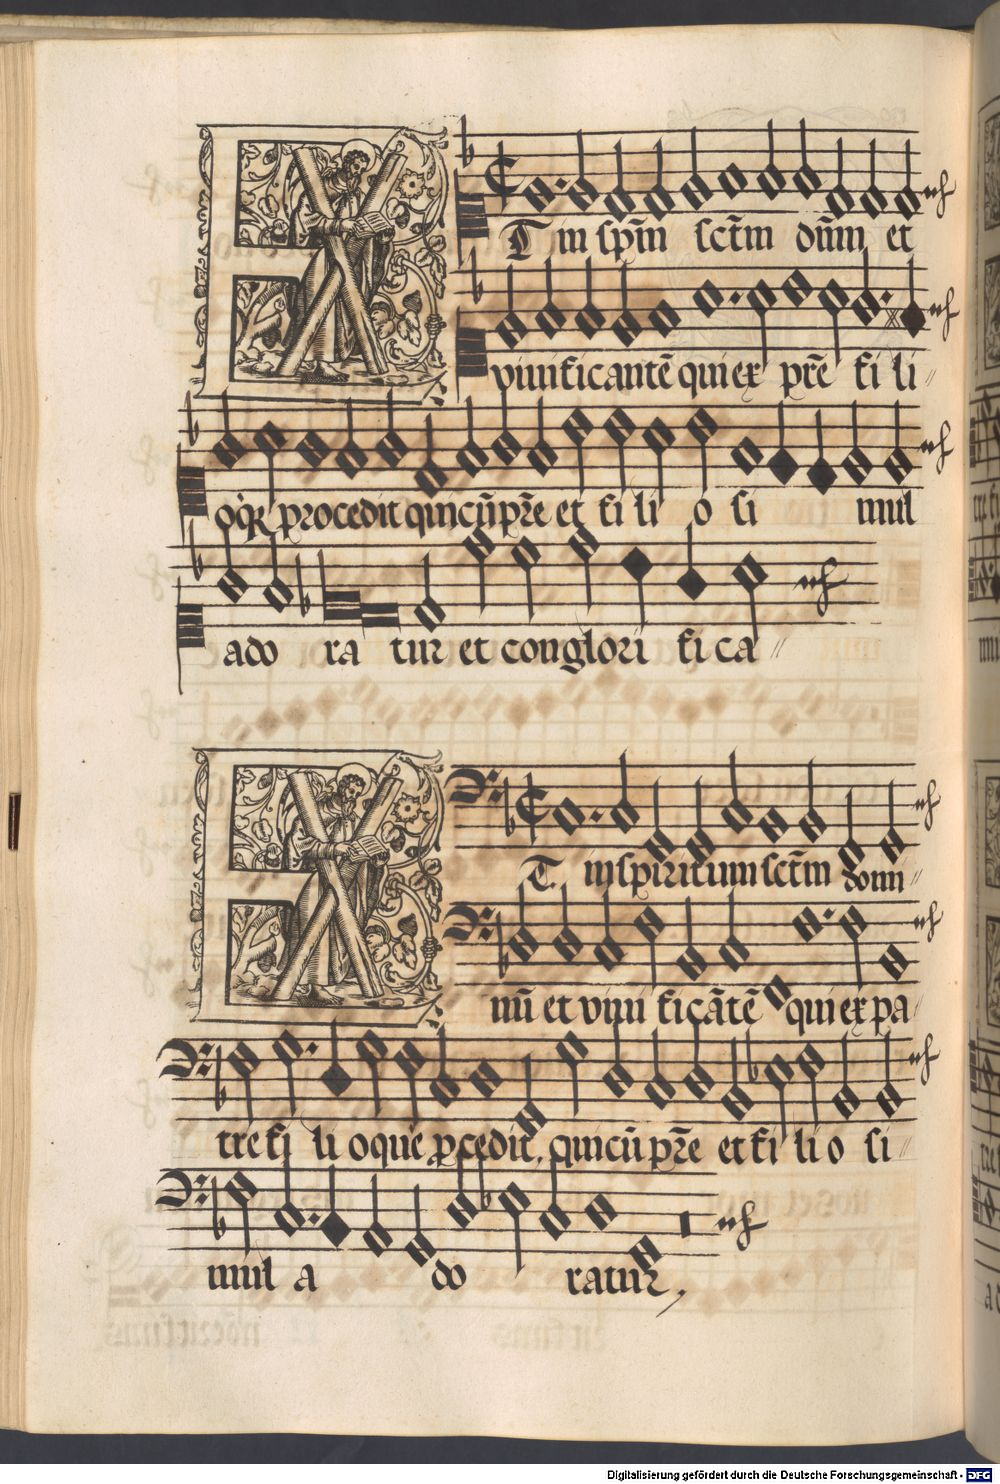 Et in spm̄ sctm̄ dūm et
viuificantē qui ex pr̄e fi li
oq̄ʒ procedit qui cū pr̄e et fi li o si mul
ado ra tur et conglori fi ca
Et in spiritum sctm̄ domi
nū et viui ficātē qui ex pa
tre fi li oque ꝓcedit, qui cū pr̄e et fi li o si
mul a do ratur,
Digitalisierung gefördert durch die Deutsche Forschungsgemeinschaft - DFG